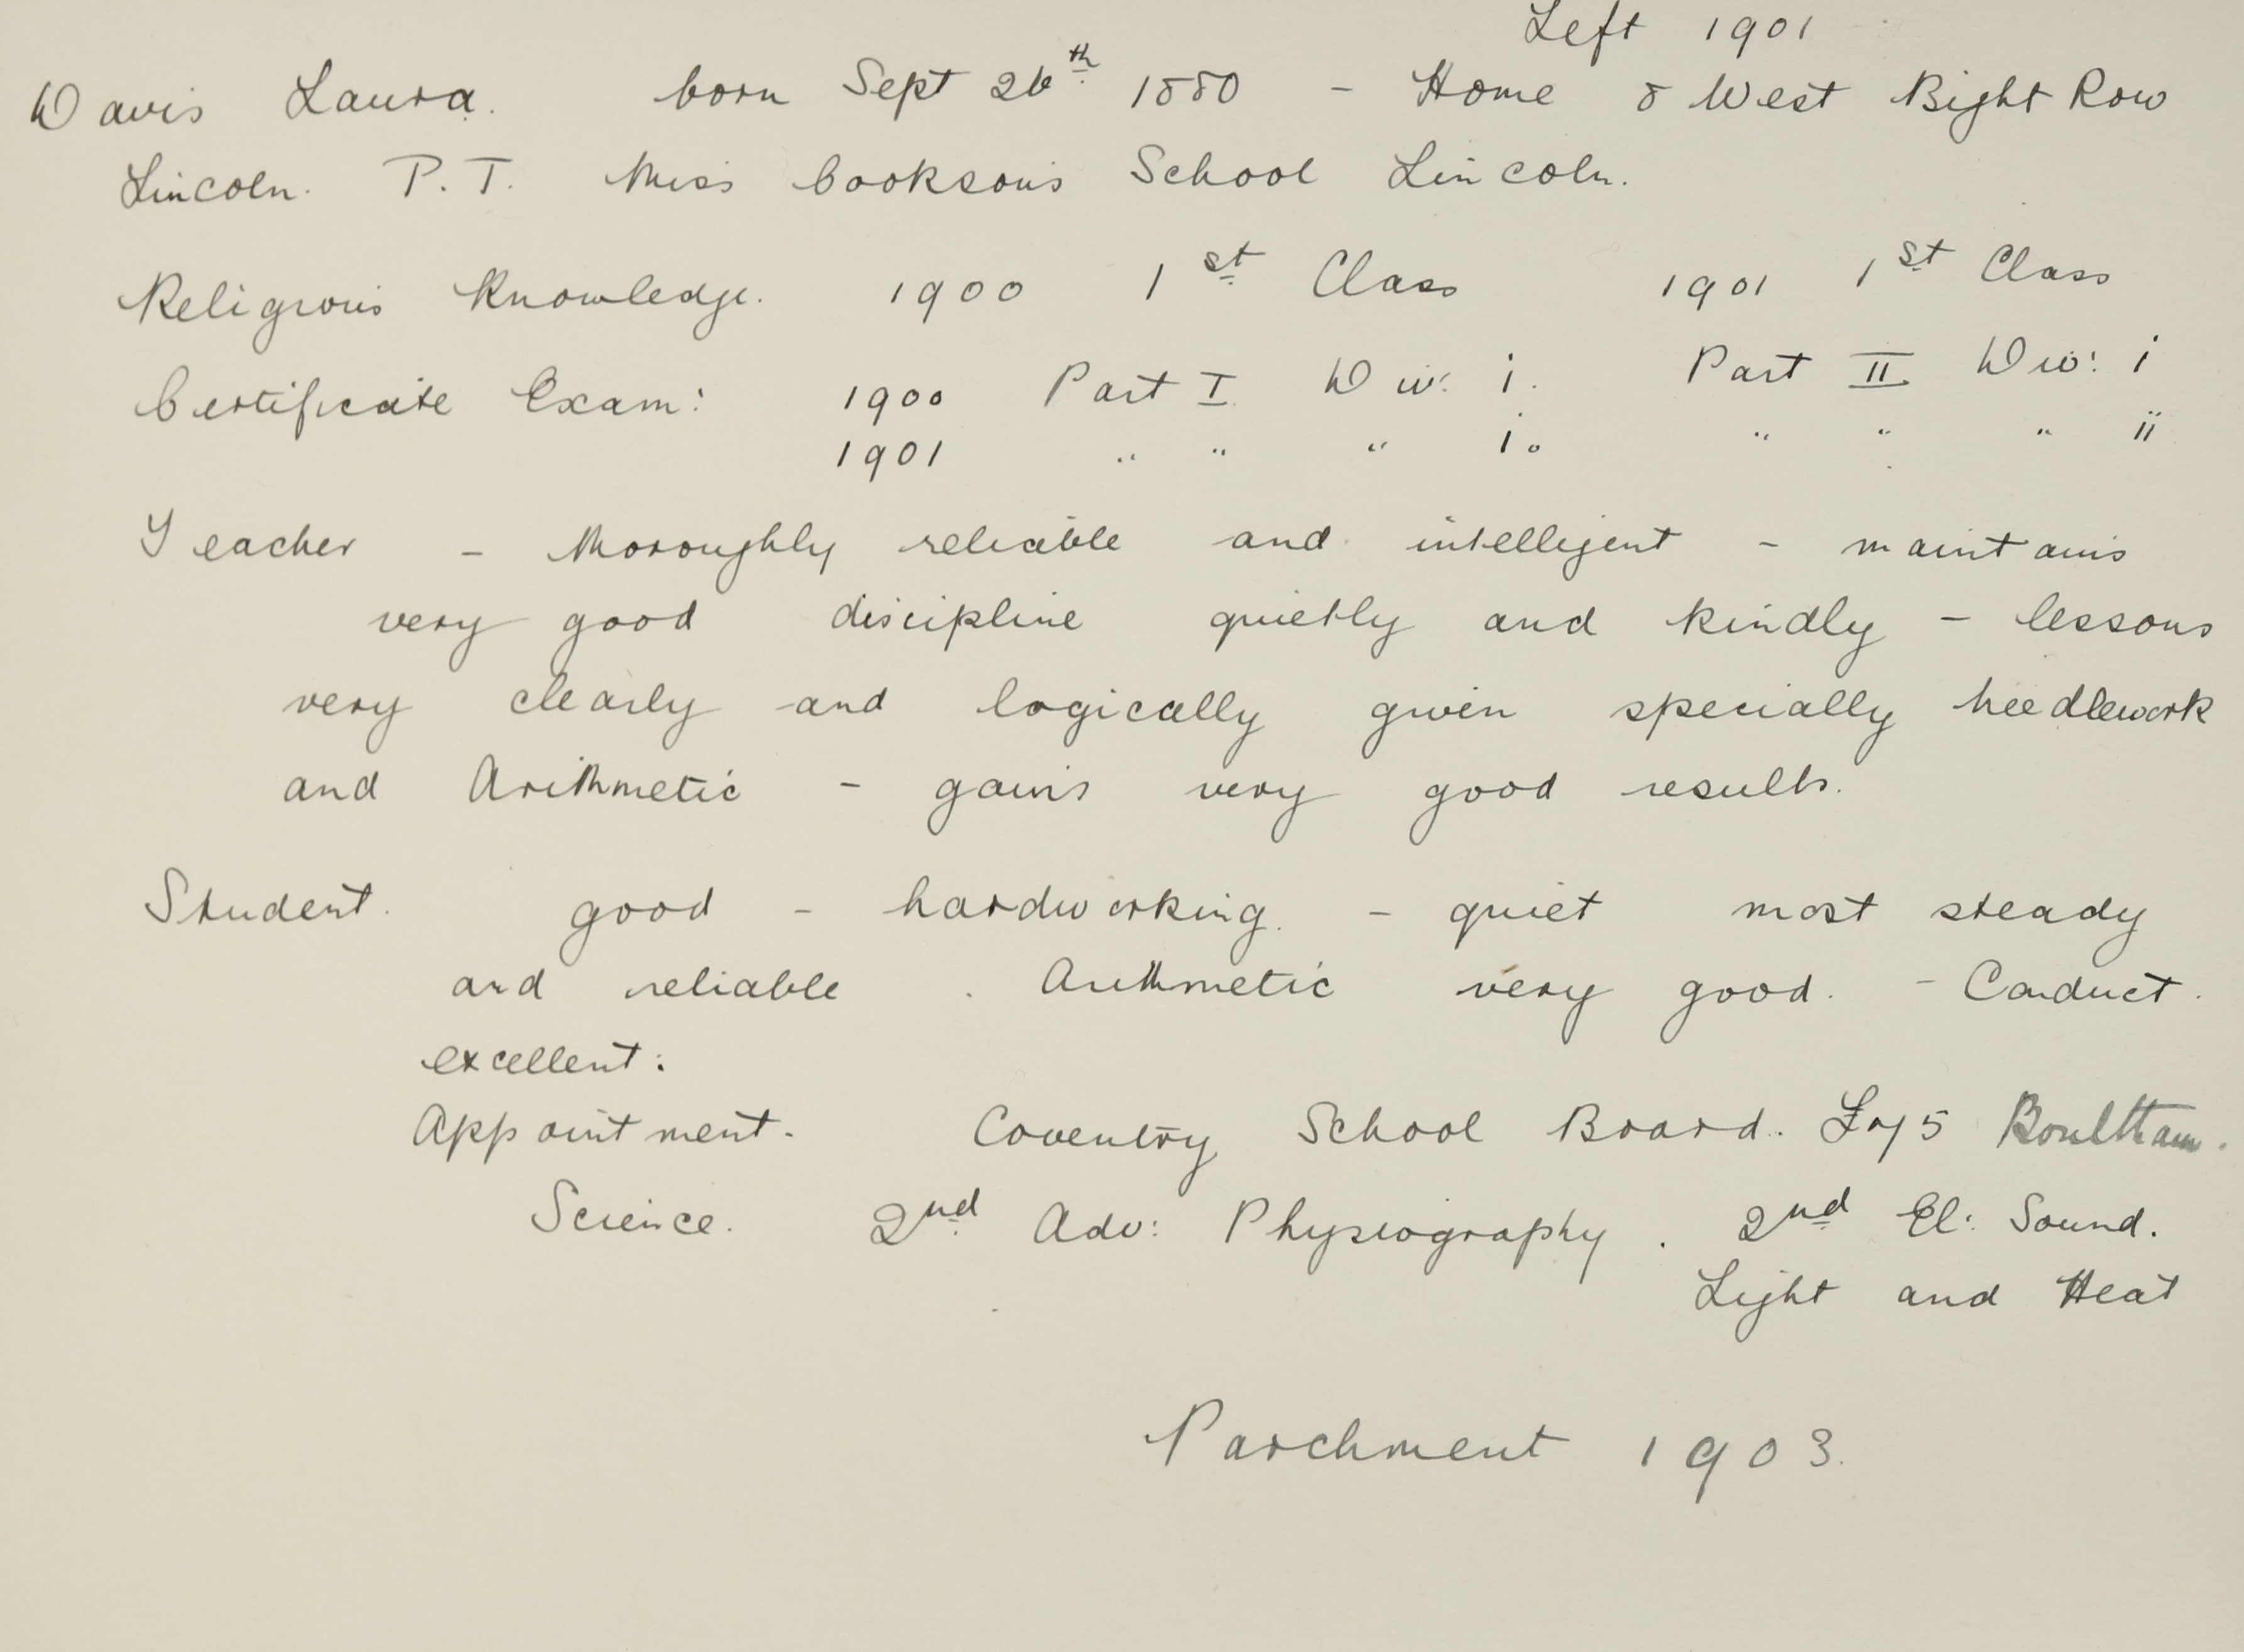 Left 1901
Davis Laura. born Sept 26th 1880 - Home 8 West Bight Row
Lincoln. P.T. Miss Cookson's School Lincoln.
Religious Knowledge. 1900 1st Class 1901 1st Class
Certificate Exam: 1900 Part I Div: i. Part II Div: i
1901 " " " i. " " " ii
Teacher - thoroughly reliable and intelligent - maintains
very good discipline quietly and kindly - lessons
very clearly and logically given specially needlework
and Arithmetic - gains very good results.
Student. good - hardworking - quiet most steady
and reliable. Arithmetic very good. - Conduct.
excellent:
Appointment. Coventry School Board. £75 Boultham.
Science. 2nd Adv: Physiography. 2nd El: Sound.
Light and Heat
Parchment 1903.